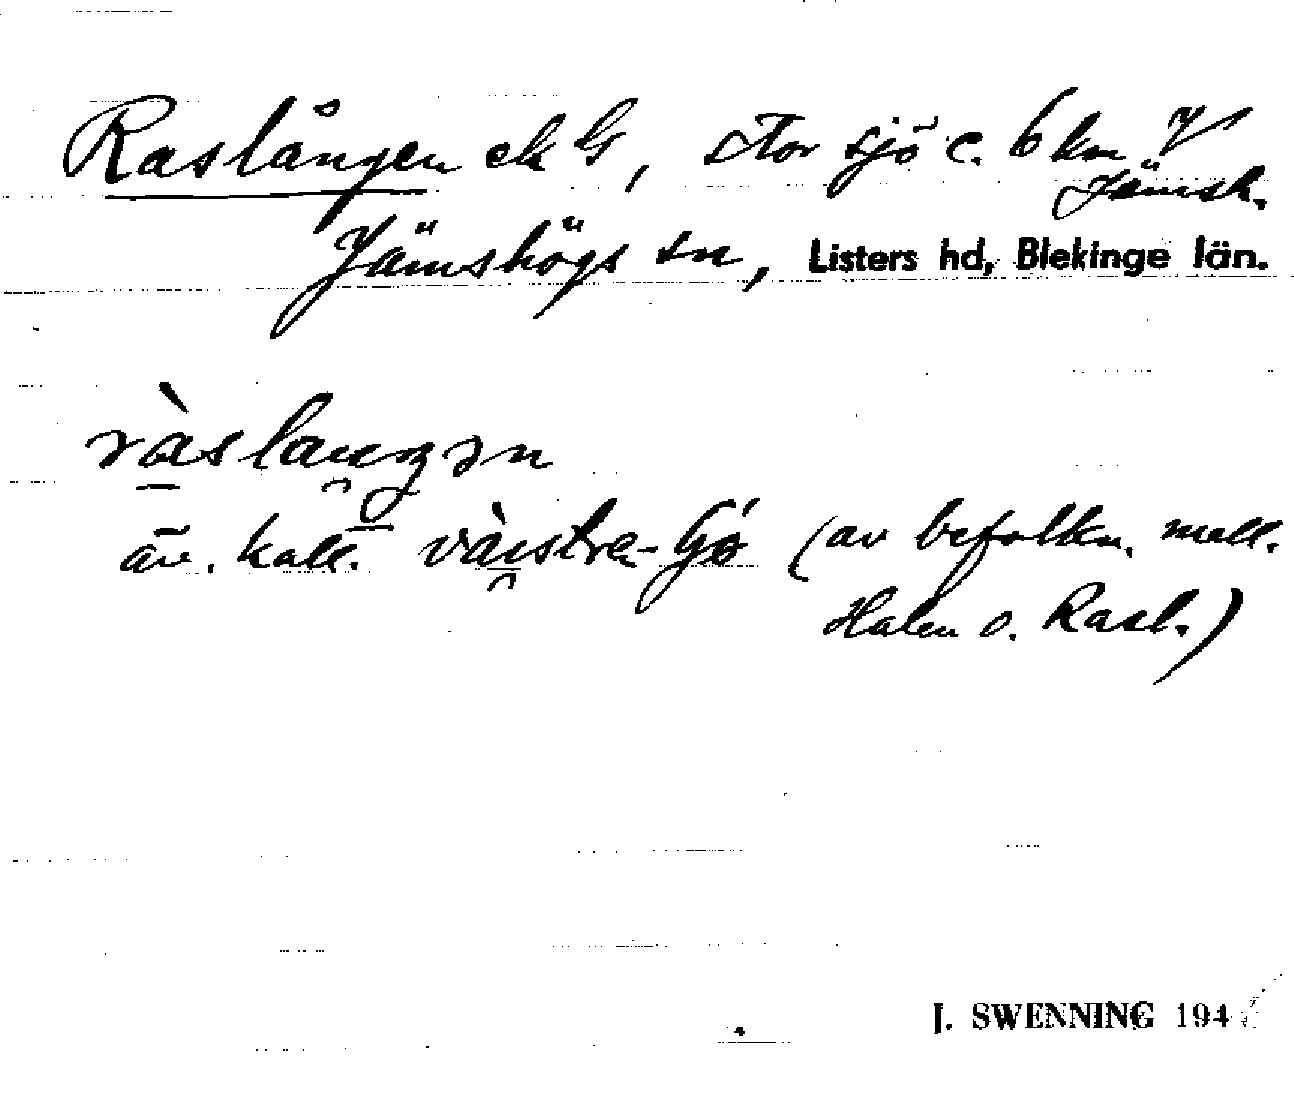 Raslången ek G, stor sjö c. 6 km V
Jämsh.
Jämshögs sn, Listers hd, Blekinge län.
ràslauŋən
äv. kall. vàistra-Sjö (av befolkn. mell.
Halen o. Rasl.)
J. SWENNING 194